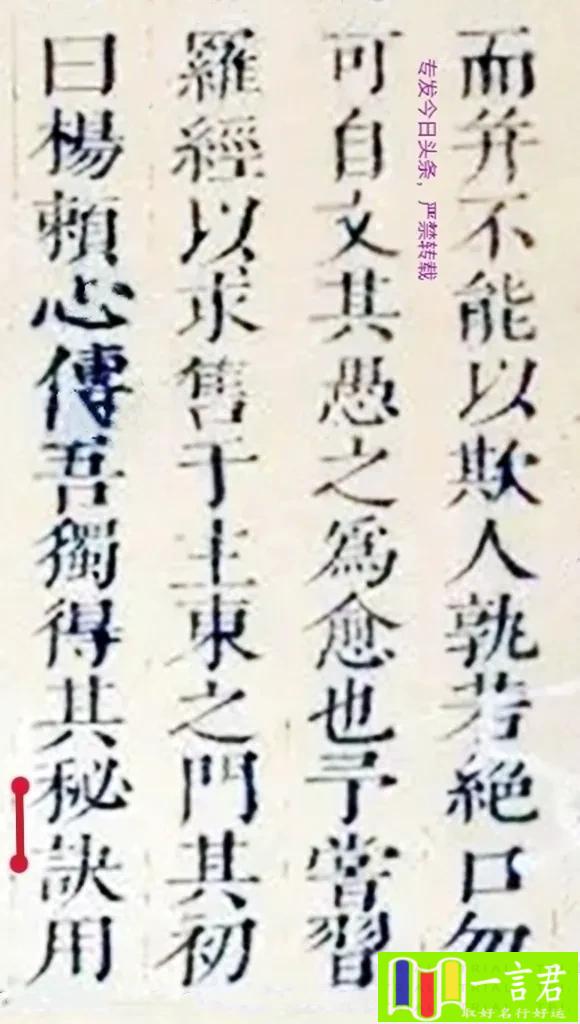 而并不能以欺人孰若絶口勿
可自文其愚之爲愈也予嘗習
羅經以求售于主東之門其初
曰楊賴心傳吾獨得其秘訣用
专发今日头条，严禁转载
一言君
取好名行好运